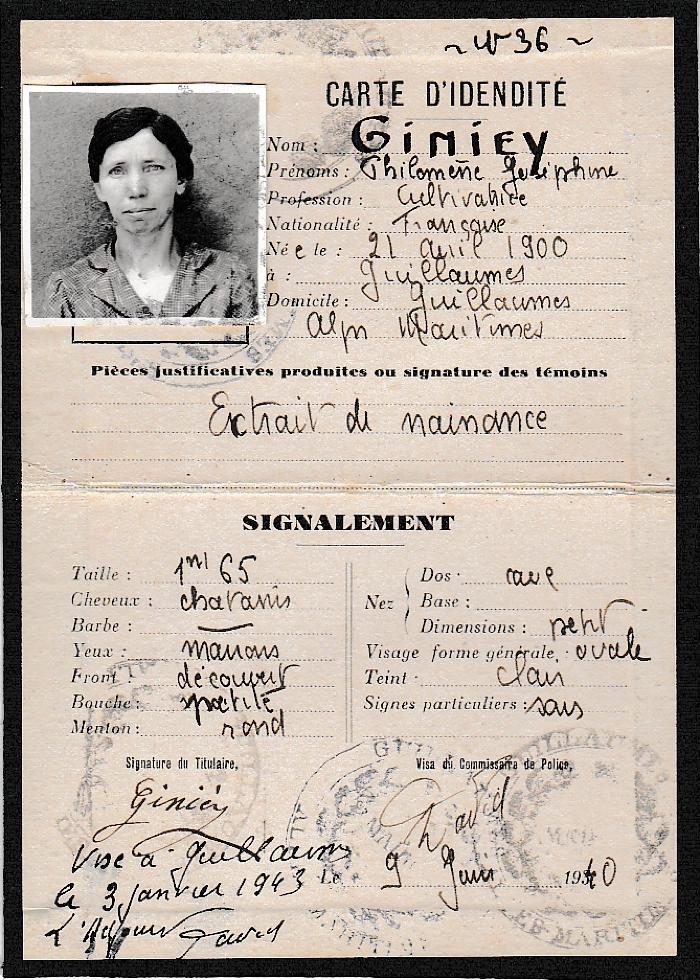 ~ N° 36 ~
CARTE D'IDENDITÉ
Nom : GiNiEy
Prénoms : Philomène Joséphine
Profession : Cultivatrice
Nationalité : Française
Née le : 21 avril 1900
à : Guillaumes
Domicile : Guillaumes
Alpes Maritimes
Pièces justificatives produites ou signature des témoins
Extrait de naissance
SIGNALEMENT
Taille : 1m 65
Cheveux : chatains
Barbe :
Yeux : marrons
Front : découvert
Bouche : petite
Menton : rond
Nez
Dos : cave
Base :
Dimensions : petit
Visage forme générale : ovale
Teint : clair
Signes particuliers : sans
Signature du Titulaire,
Giniéy
Visa du Commissaire de Police,
David
Le 9 Juin 1940
Visé à Guillaumes
le 3 janvier 1943
L'Adjoint David